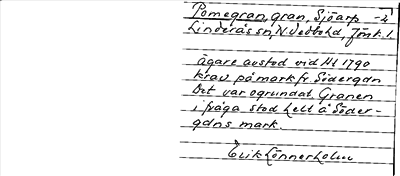 Pomegran, gran, Sjöarp -2
Linderås sn, N. Vedbo hd, Jönk. l
ägare avstod vid HL 1790
krav på mark fr. Södergdn
Det var ogrundat. Granen
i fråga stod helt å Söder-
gdns mark.
Erik Lönnerholm